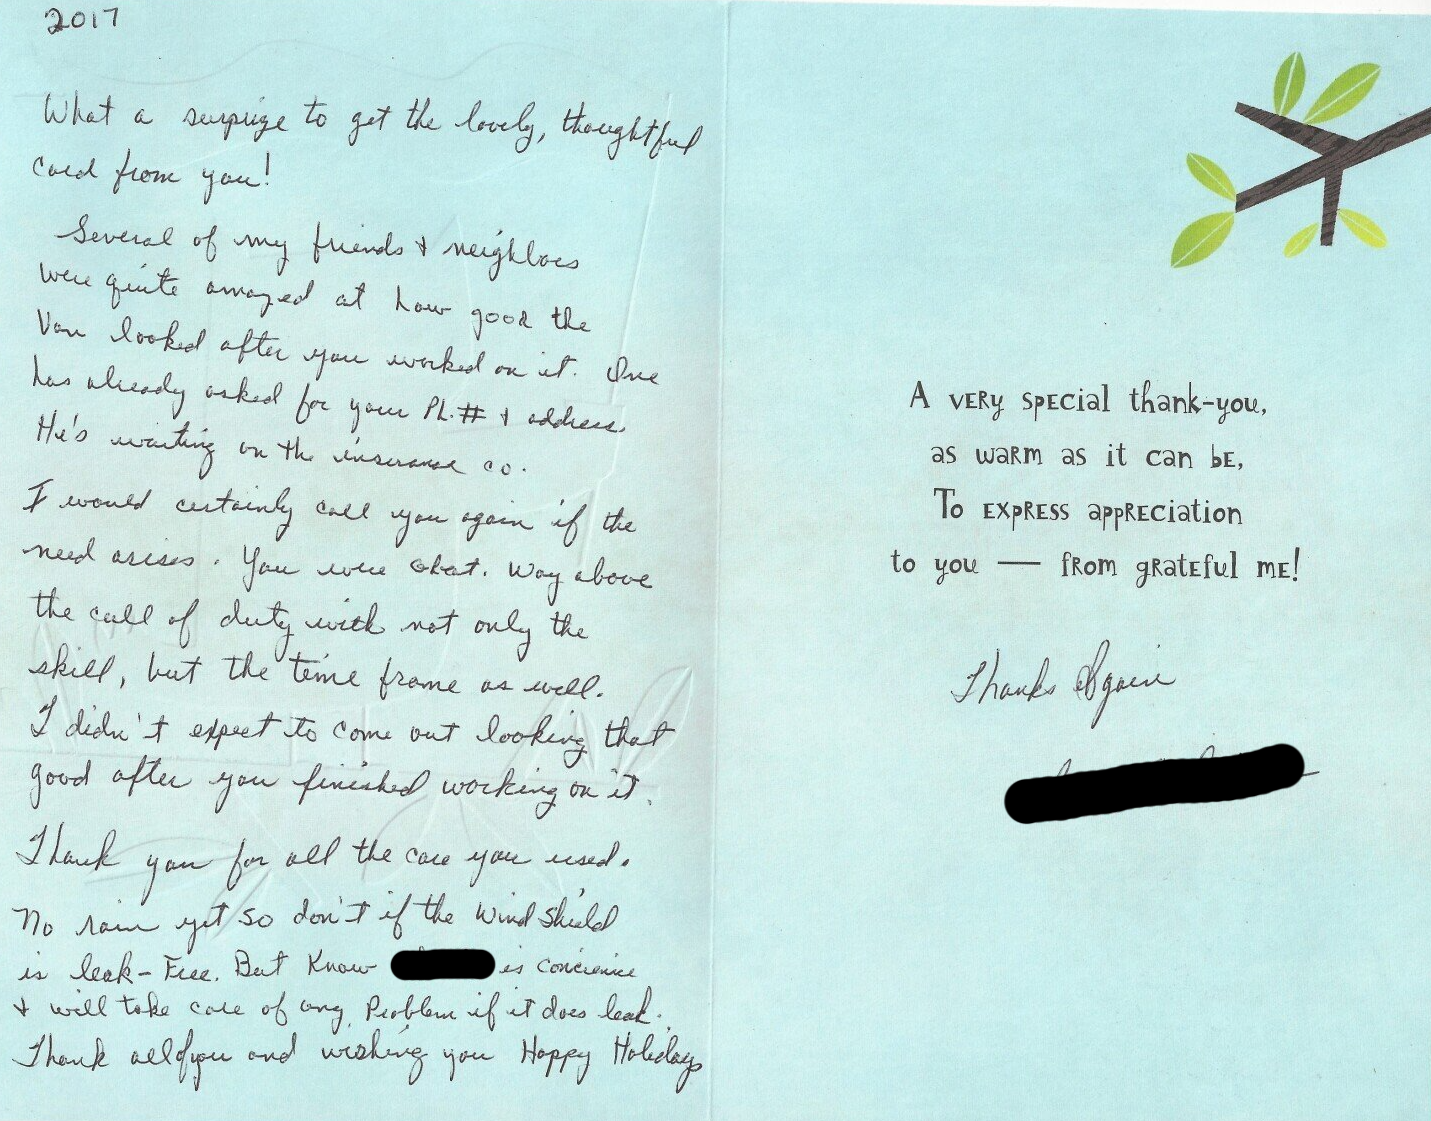 2017
What a surprize to get the lovely, thoughtful
card from you!
Several of my friends & neighbors
were quite amazed at how good the
Van looked after you worked on it. One
has already asked for your Ph.# & address.
He's waiting on the insurance co.
I would certainly call you again if the
need arises. You were great. Way above
the call of duty with not only the
skill, but the time frame as well.
I didn't expect to come out looking that
good after you finished working on it.
Thank you for all the care you used.
No rain yet so don't if the Wind Shield
is leak-Free. But Know is concience
& will take care of any Problem if it does leak.
Thank all of you and wishing you Happy Holidays
A very special thank-you,
as warm as it can be,
To express appreciation
to you — from grateful me!
Thanks Again